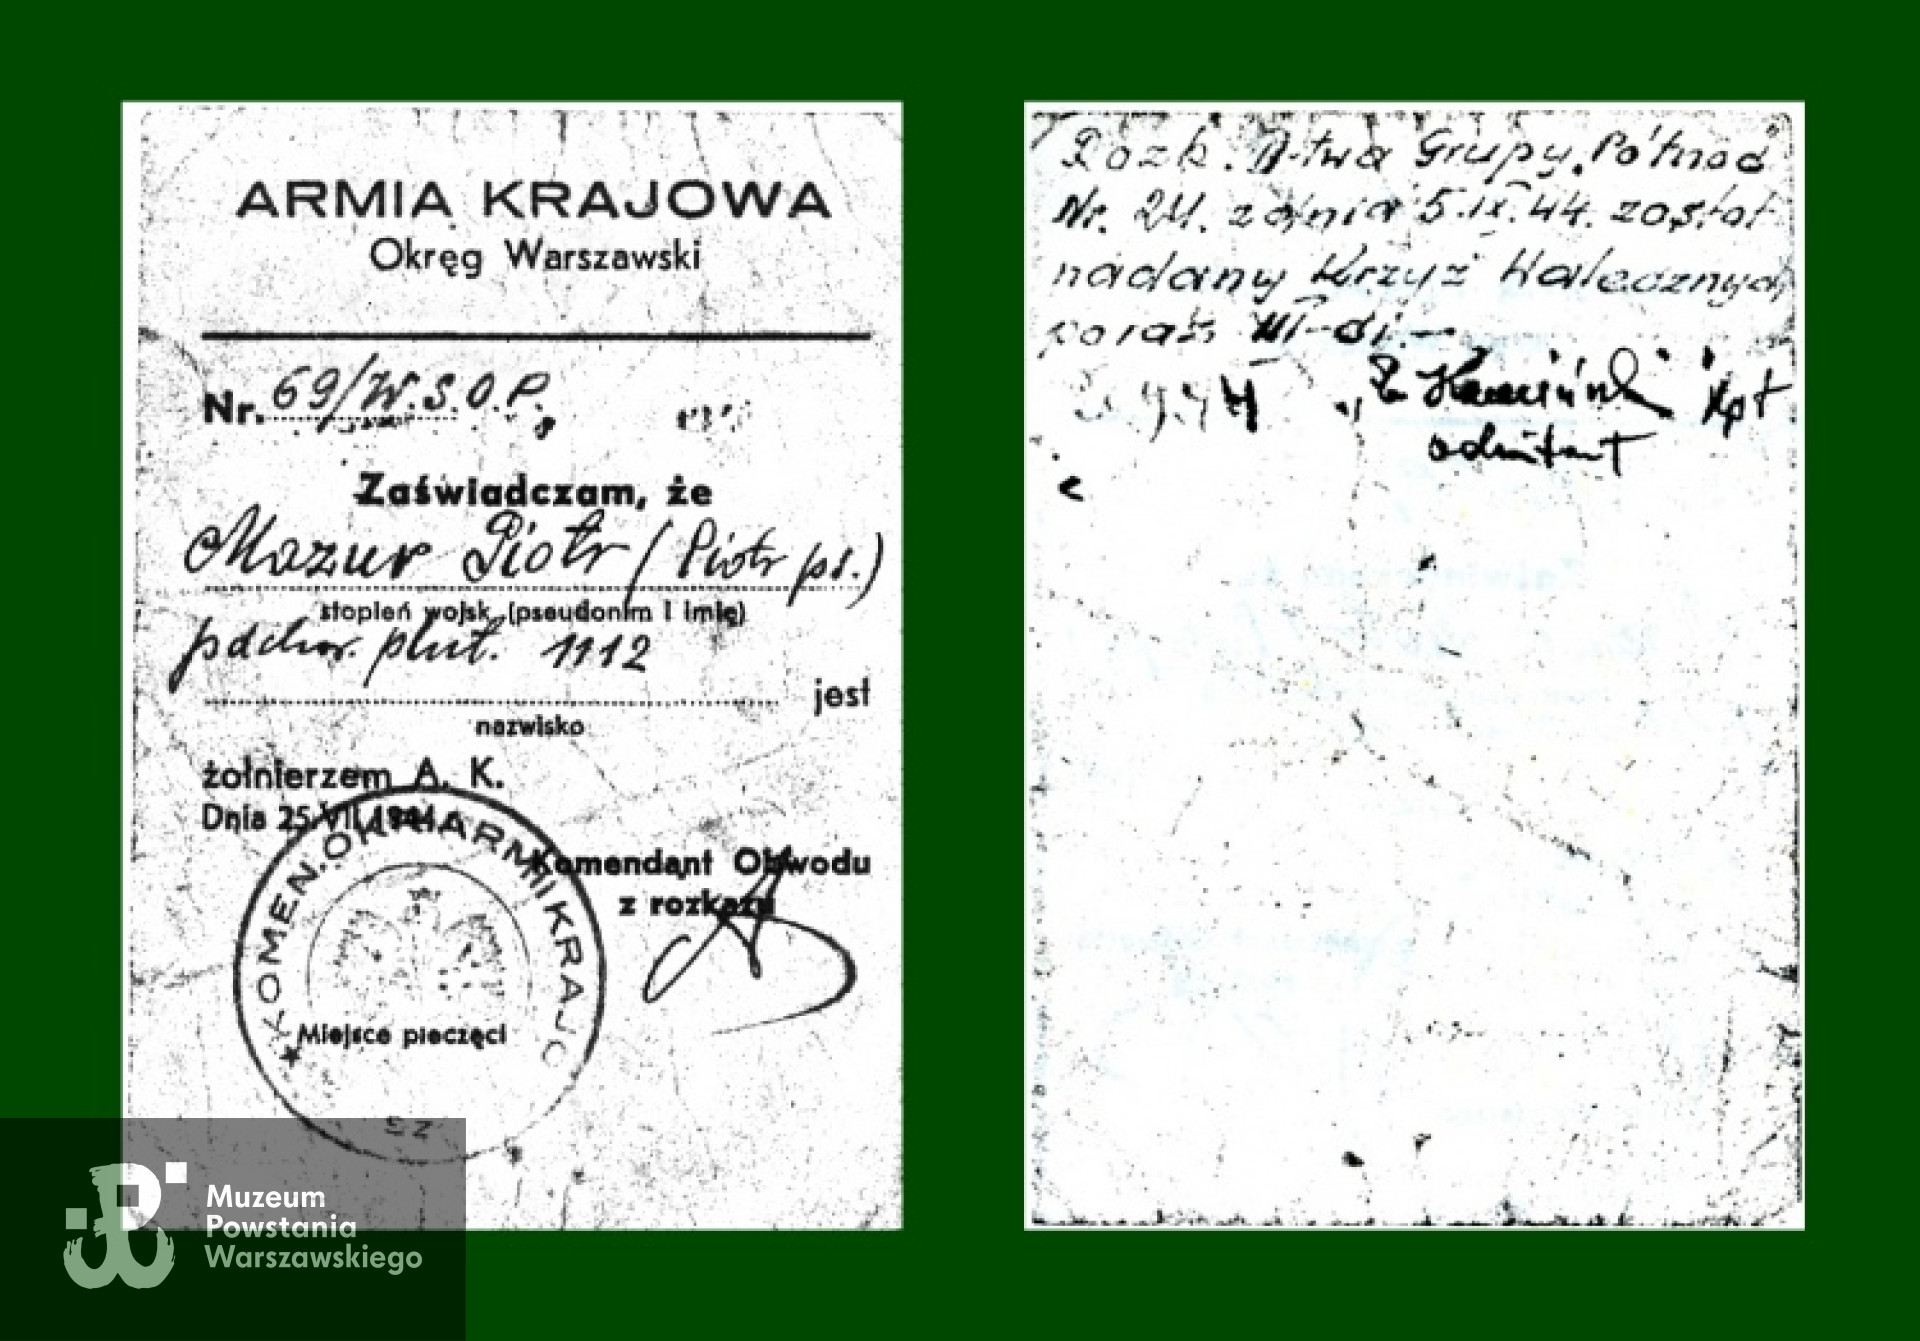 ARMIA KRAJOWA
Okręg Warszawski
Nr. 69/W.S.O.P.
Zaświadczam, że
Mazur Piotr (Piotr ps.)
stopień wojsk. (pseudonim i imię)
pdchor. plut. 1112
jest
nazwisko
żołnierzem A. K.
Dnia 25.VII.1944
Komendant Obwodu
z rozkazu
KOMEN. ARMII KRAJO
Miejsce pieczęci
Muzeum
Powstania
Warszawskiego
Rozk. D-twa Grupy "Północ"
Nr. z dnia 5.IX.44. został
nadany Krzyż Walecznych
poraz
Kpt
adiutant